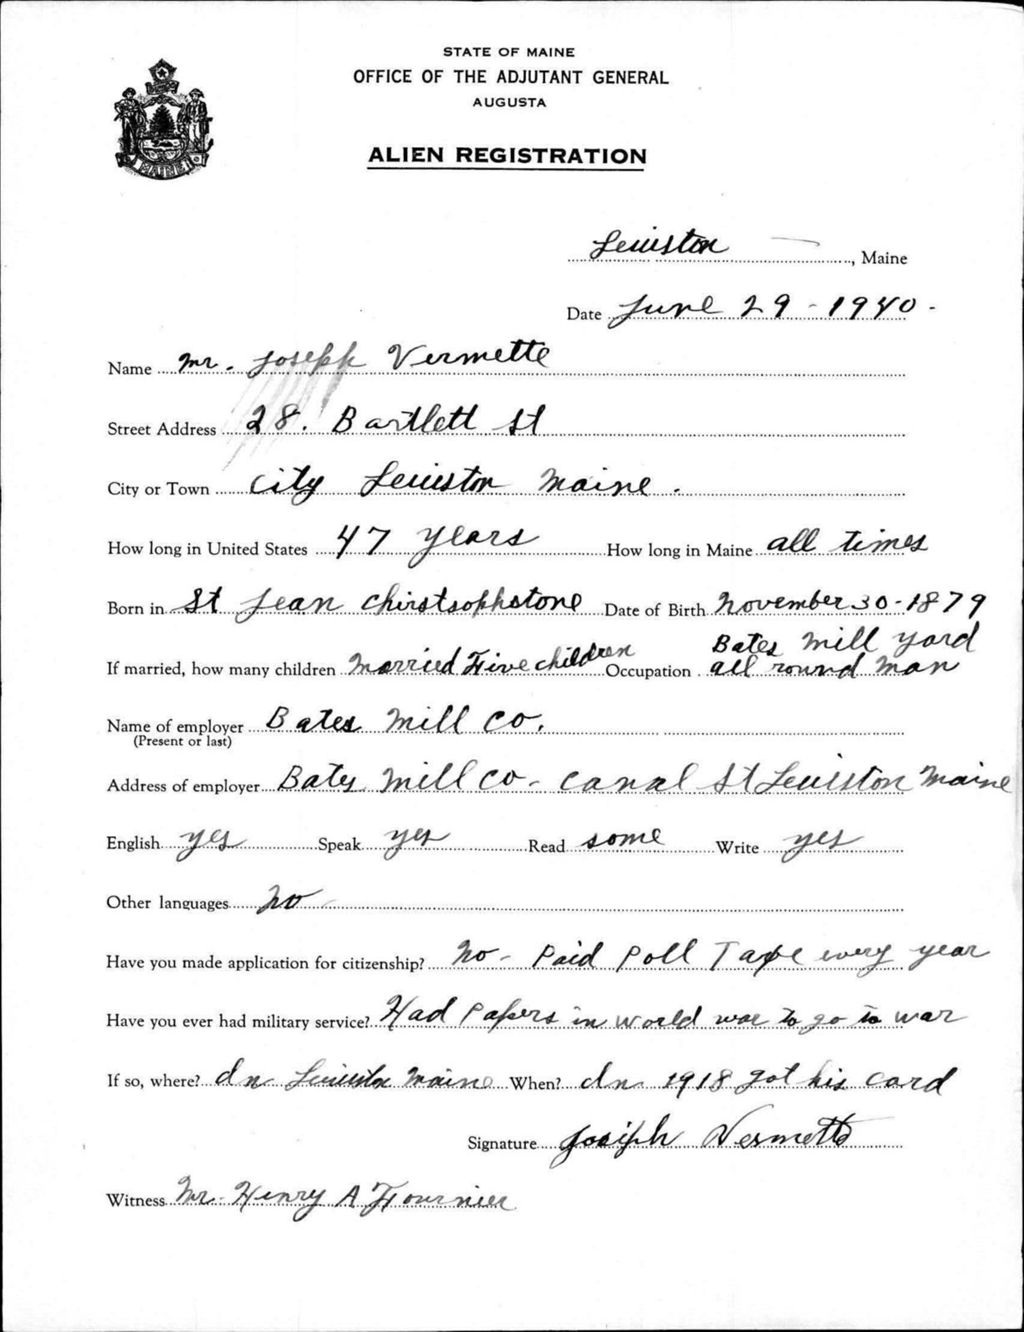 STATE OF MAINE
OFFICE OF THE ADJUTANT GENERAL
AUGUSTA
ALIEN REGISTRATION
MAINE
Lewiston, Maine
Date June 29 - 1940 -
Name Mr. Joseph Vermette
Street Address 28. Bartlett St
City or Town City Lewiston Maine.
How long in United States 47 years How long in Maine all times
Born in St Jean Chirstsophstone Date of Birth November 30 - 1879
If married, how many children Married Five children Occupation Bates Mill yard all round man
Name of employer Bates Mill Co.
(Present or last)
Address of employer Bates Mill Co - Canal St Lewiston Maine
English yes Speak yes Read some Write yes
Other languages no
Have you made application for citizenship? No - Paid Poll Taxe every year
Have you ever had military service? Had Papers in world war to go to war
If so, where? In Lewiston Maine When? In 1918 got his card
Signature Joseph Vermette
Witness Mr. Henry A Fournier